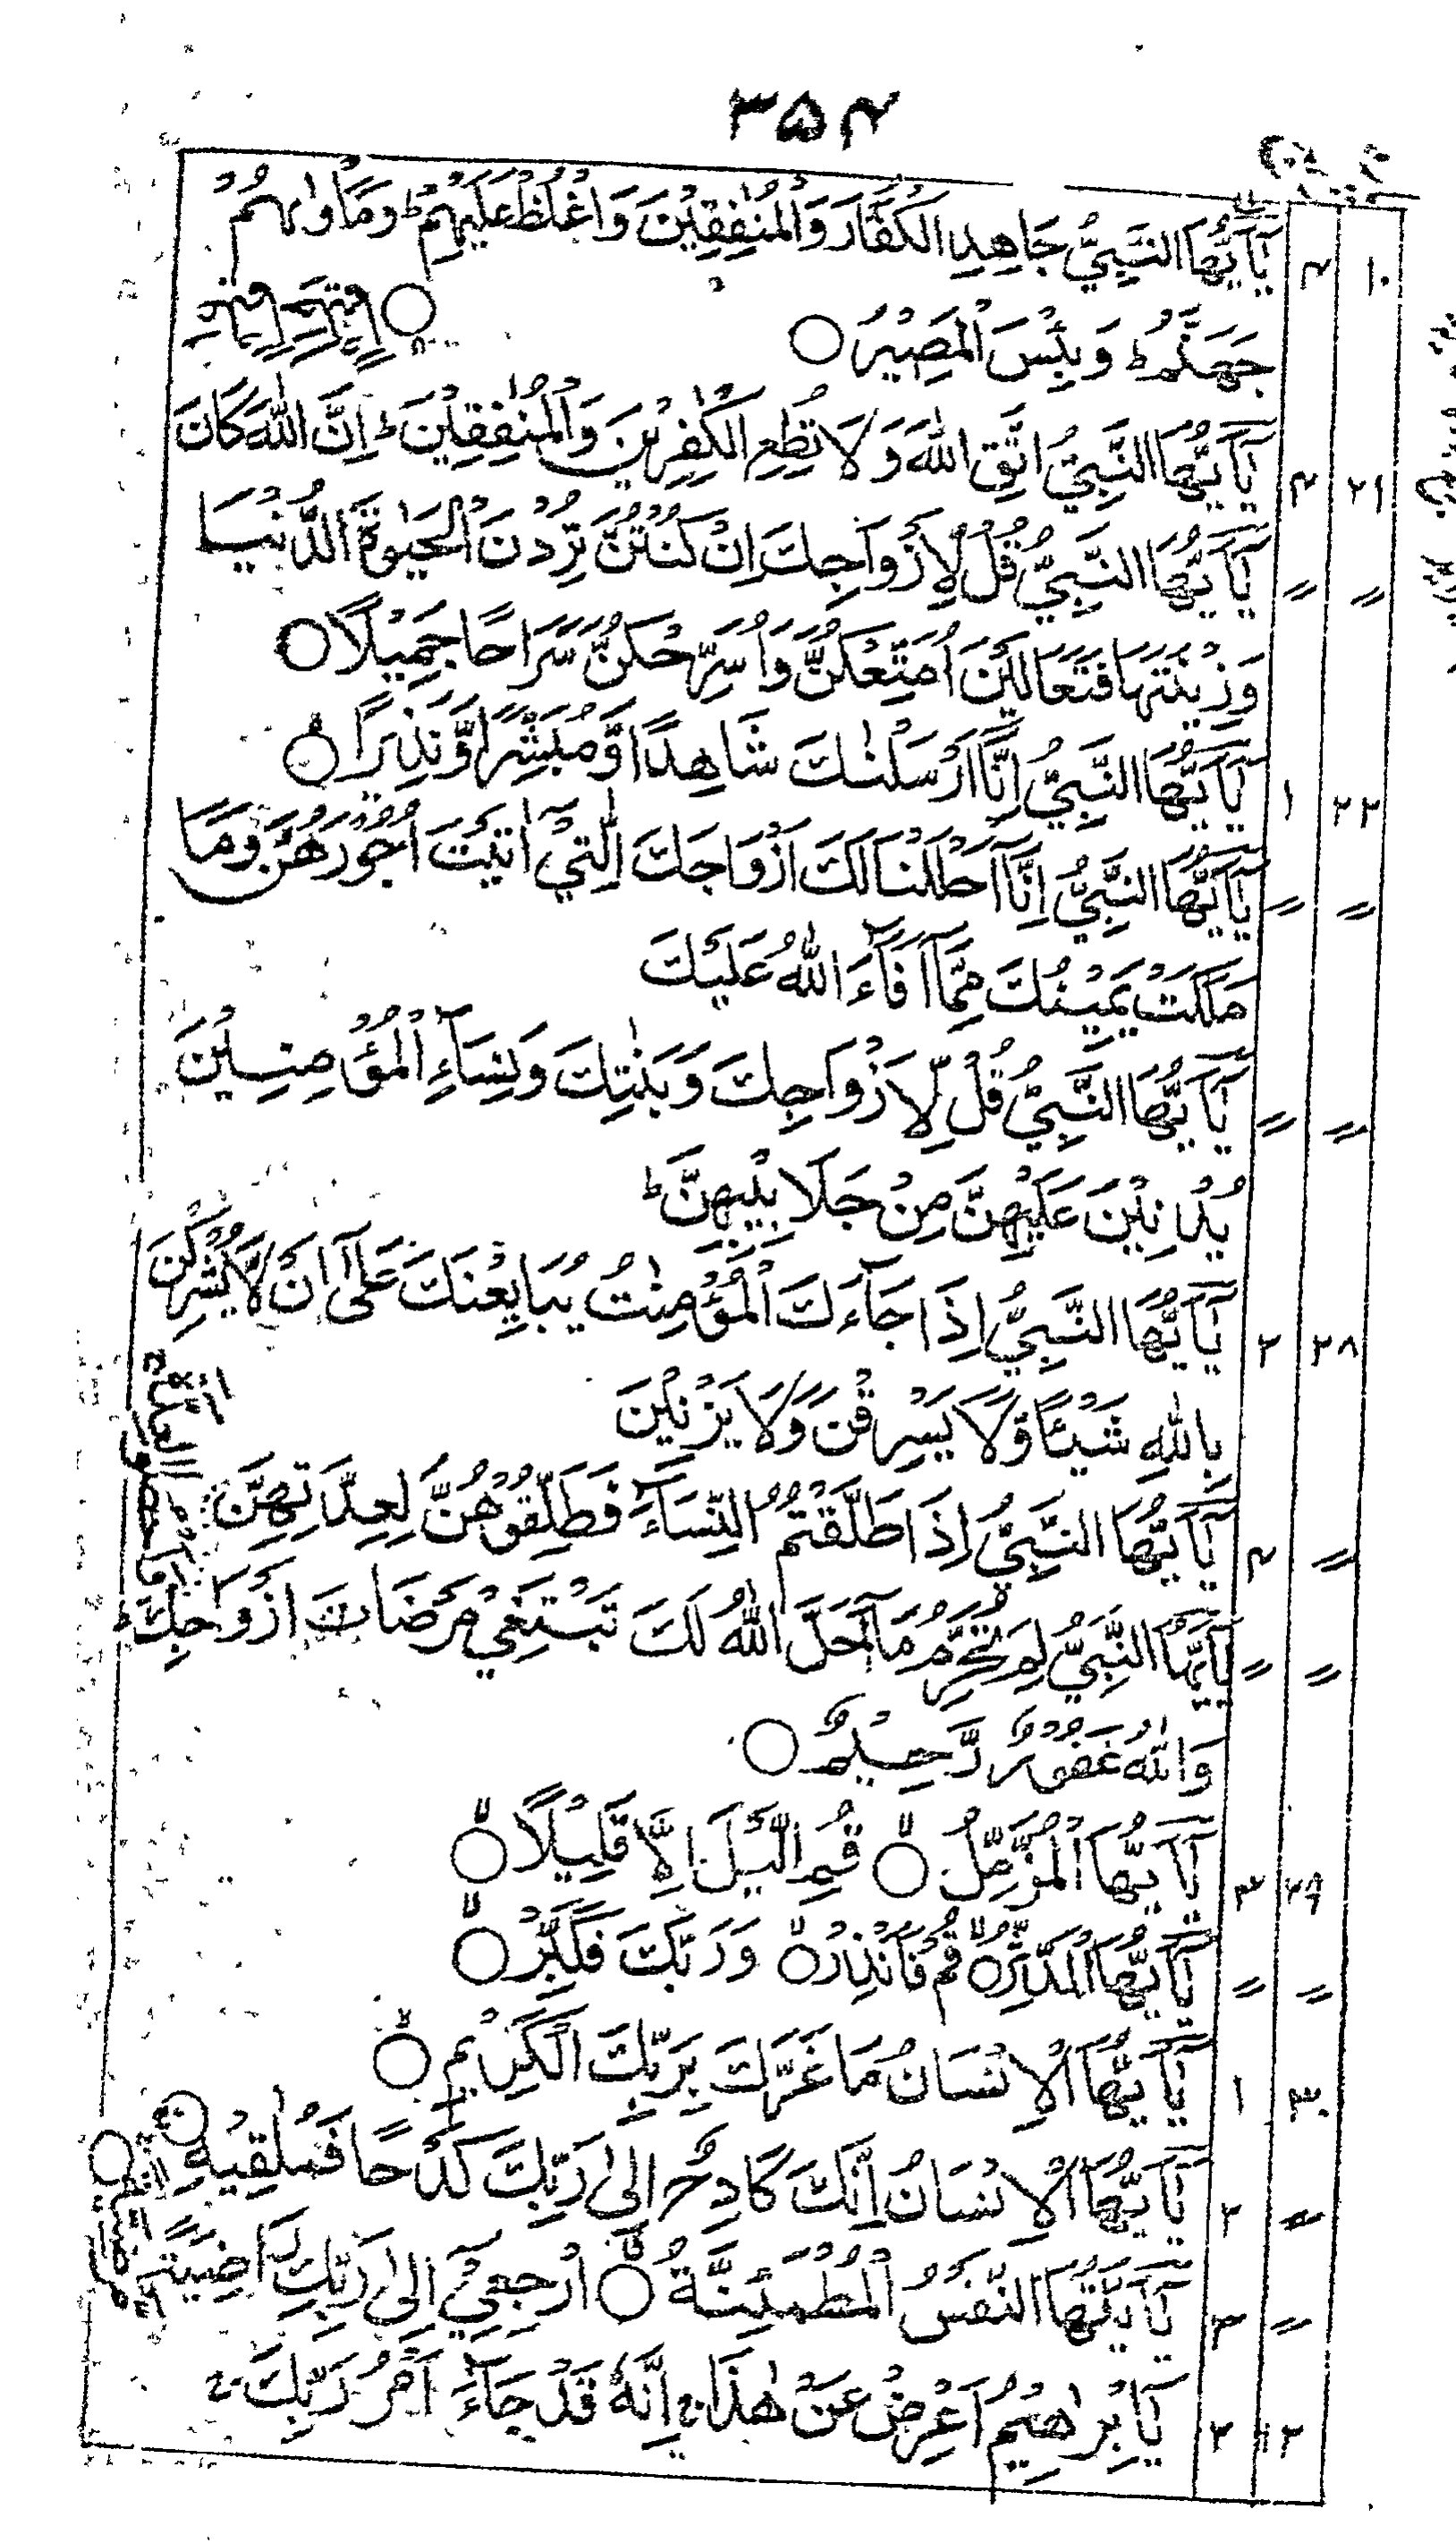 ۳۵۴
۱۰ ۴ يٰٓاَيُّهَا النَّبِيُّ جَاهِدِ الْكُفَّارَ وَالْمُنٰفِقِيْنَ وَاغْلُظْ عَلَيْهِمْ ؕ وَمَاْوٰىهُمْ
جَهَنَّمُ ؕ وَبِئْسَ الْمَصِيْرُ ○
۲۱ ۴ يٰٓاَيُّهَا النَّبِيُّ اتَّقِ اللّٰهَ وَلَا تُطِعِ الْكٰفِرِيْنَ وَالْمُنٰفِقِيْنَ ؕ اِنَّ اللّٰهَ كَانَ
○
〃 〃 يٰٓاَيُّهَا النَّبِيُّ قُلْ لِّاَزْوَاجِكَ اِنْ كُنْتُنَّ تُرِدْنَ الْحَيٰوةَ الدُّنْيَا
وَزِيْنَتَهَا فَتَعَالَيْنَ اُمَتِّعْكُنَّ وَاُسَرِّحْكُنَّ سَرَاحًا جَمِيْلًا ○
۲۲ ۱ يٰٓاَيُّهَا النَّبِيُّ اِنَّآ اَرْسَلْنٰكَ شَاهِدًا وَّمُبَشِّرًا وَّنَذِيْرًا ○
〃 〃 يٰٓاَيُّهَا النَّبِيُّ اِنَّآ اَحْلَلْنَا لَكَ اَزْوَاجَكَ الّٰتِيْٓ اٰتَيْتَ اُجُوْرَهُنَّ وَمَا
مَلَكَتْ يَمِيْنُكَ مِمَّآ اَفَآءَ اللّٰهُ عَلَيْكَ
〃 〃 يٰٓاَيُّهَا النَّبِيُّ قُلْ لِّاَزْوَاجِكَ وَبَنٰتِكَ وَنِسَآءِ الْمُؤْمِنِيْنَ
يُدْنِيْنَ عَلَيْهِنَّ مِنْ جَلَابِيْبِهِنَّ ؕ
۲۸ ۲ يٰٓاَيُّهَا النَّبِيُّ اِذَا جَآءَكَ الْمُؤْمِنٰتُ يُبَايِعْنَكَ عَلٰٓى اَنْ لَّا يُشْرِكْنَ
بِاللّٰهِ شَيْئًا وَّلَا يَسْرِقْنَ وَلَا يَزْنِيْنَ
〃 ۴ يٰٓاَيُّهَا النَّبِيُّ اِذَا طَلَّقْتُمُ النِّسَآءَ فَطَلِّقُوْهُنَّ لِعِدَّتِهِنَّ
〃 〃 يٰٓاَيُّهَا النَّبِيُّ لِمَ تُحَرِّمُ مَآ اَحَلَّ اللّٰهُ لَكَ تَبْتَغِيْ مَرْضَاتَ اَزْوَاجِكَ ؕ
وَاللّٰهُ غَفُوْرٌ رَّحِيْمٌ ○
۲۹ ۳ يٰٓاَيُّهَا الْمُزَّمِّلُ ○ قُمِ الَّيْلَ اِلَّا قَلِيْلًا ○
〃 〃 يٰٓاَيُّهَا الْمُدَّثِّرُ ○ قُمْ فَاَنْذِرْ ○ وَرَبَّكَ فَكَبِّرْ ○
۳۰ ۱ يٰٓاَيُّهَا الْاِنْسَانُ مَا غَرَّكَ بِرَبِّكَ الْكَرِيْمِ ○
〃 ۲ يٰٓاَيُّهَا الْاِنْسَانُ اِنَّكَ كَادِحٌ اِلٰى رَبِّكَ كَدْحًا فَمُلٰقِيْهِ ○
〃 ۳ يٰٓاَيَّتُهَا النَّفْسُ الْمُطْمَئِنَّةُ ○ ارْجِعِيْٓ اِلٰى رَبِّكِ رَاضِيَةً
۱۲ ۲ يٰٓاِبْرٰهِيْمُ اَعْرِضْ عَنْ هٰذَا ۚ اِنَّهٗ قَدْ جَآءَ اَمْرُ رَبِّكَ ۚ